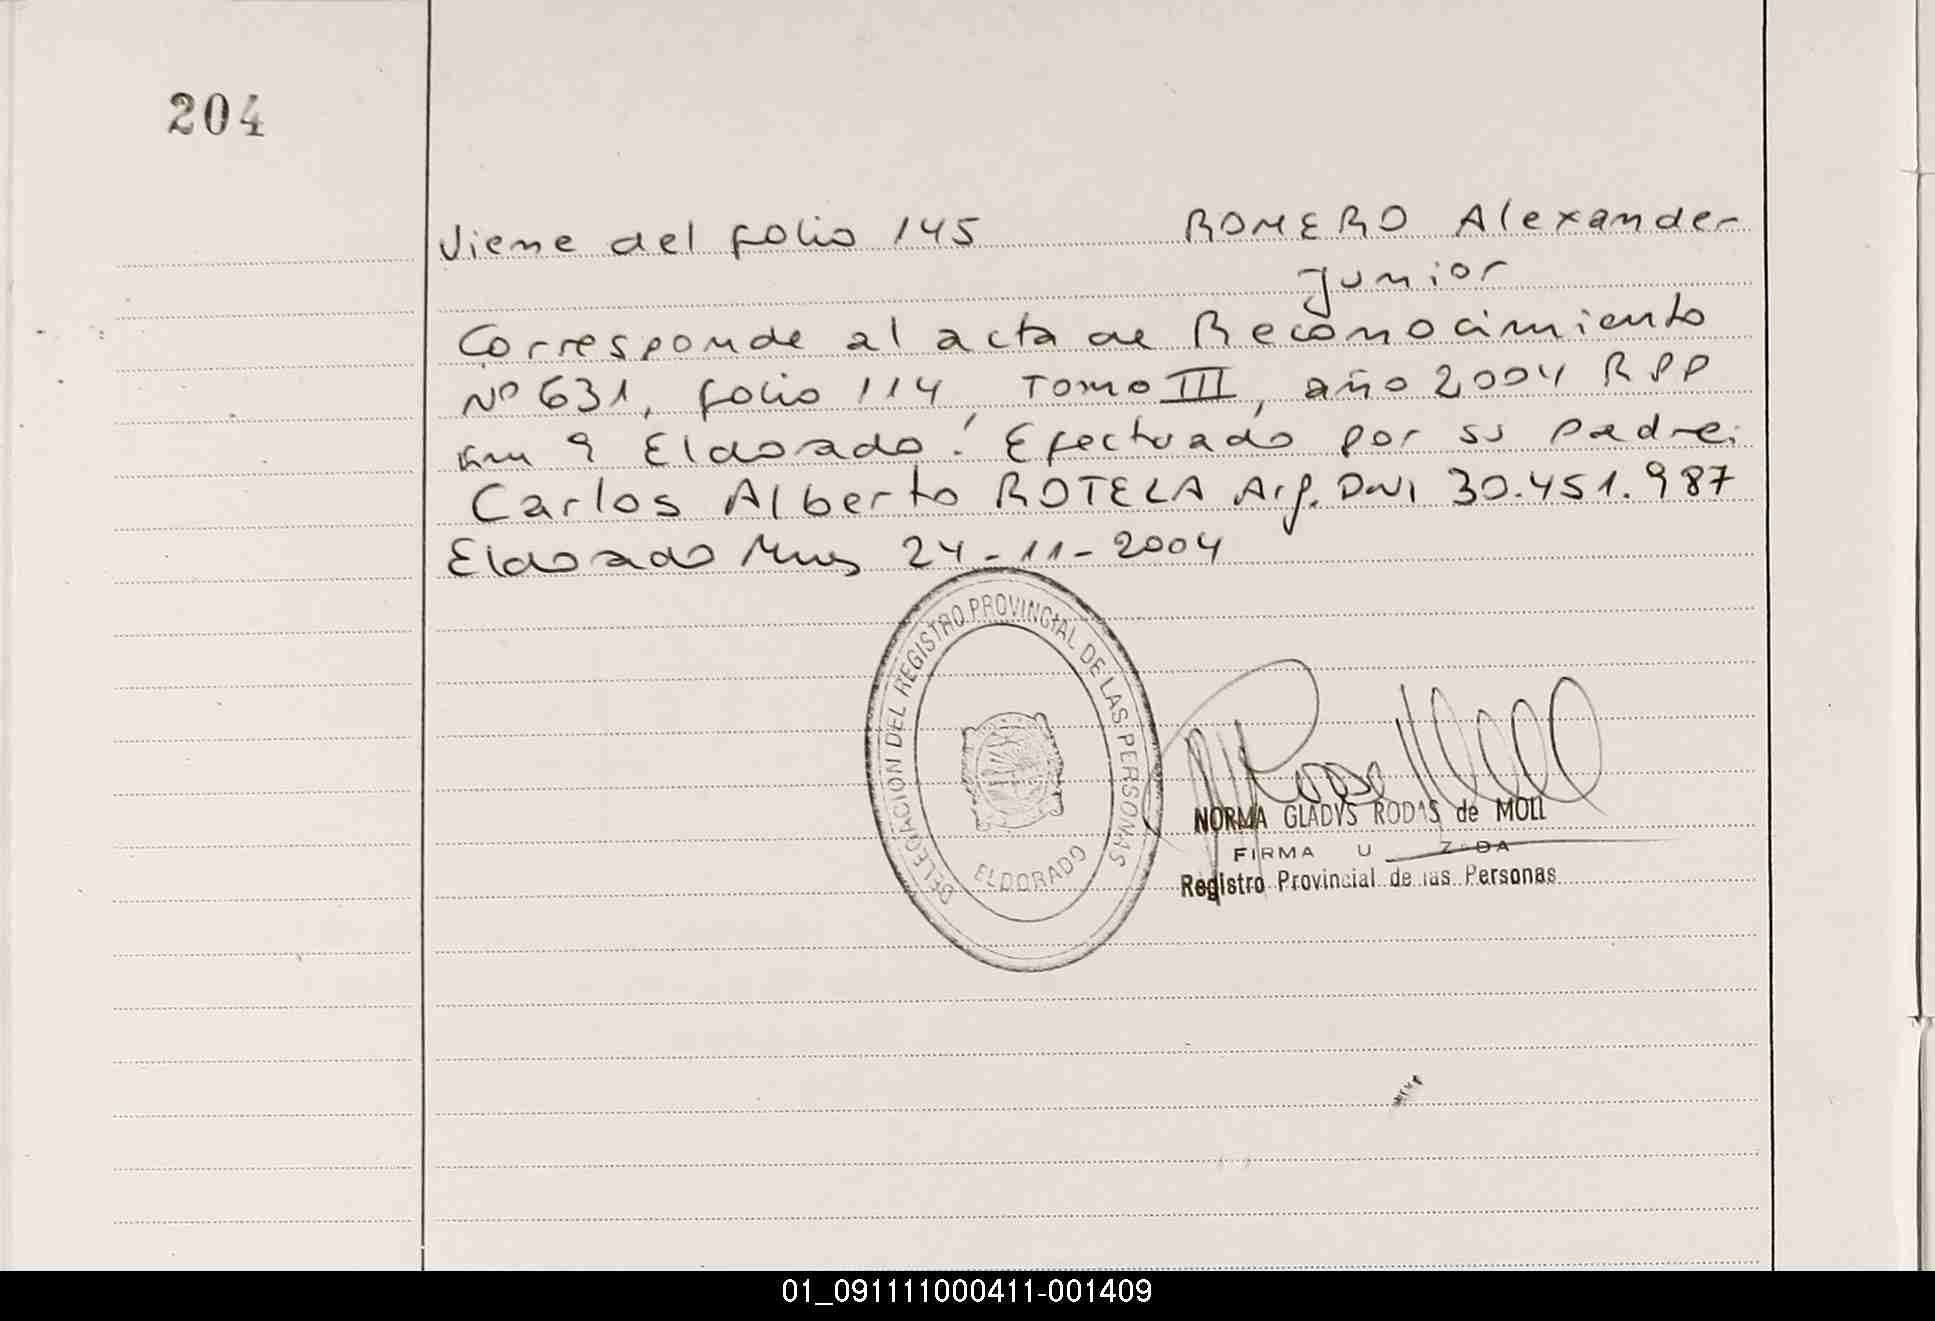 204
Viene del folio 145 ROMERO Alexander
Junior
Corresponde al acta de Reconocimiento
Nº 631, folio 114, Tomo III, año 2004 RPP
km 9 Eldorado. Efectuado por su padre:
Carlos Alberto ROTELA Arg. DNI 30.451.987
Eldorado Mnes 24-11-2004
DELEGACION DEL REGISTRO PROVINCIAL DE LAS PERSONAS
ELDORADO
NORMA GLADYS RODAS de MOLL
FIRMA U Z DA
Registro Provincial de las Personas
01_091111000411-001409